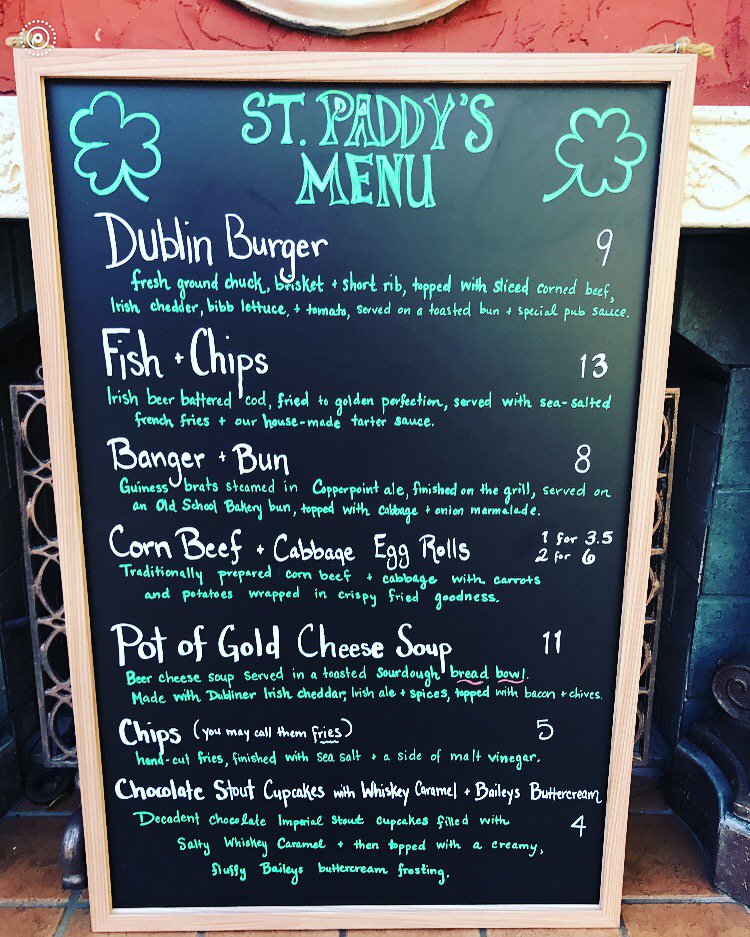 ST. PADDY'S
MENU
Dublin Burger 9
fresh ground chuck, brisket + short rib, topped with sliced corned beef,
Irish chedder, bibb lettuce, + tomato, served on a toasted bun + special pub sauce.
Fish + Chips 13
Irish beer battered cod, fried to golden perfection, served with sea-salted
french fries + our house-made tarter sauce.
Banger + Bun 8
Guiness brats steamed in Copperpoint ale, finished on the grill, served on
an Old School Bakery bun, topped with cabbage + onion marmalade.
Corn Beef + Cabbage Egg Rolls 1 for 3.5
2 for 6
Traditionally prepared corn beef + cabbage with carrots
and potatoes wrapped in crispy fried goodness.
Pot of Gold Cheese Soup 11
Beer cheese soup served in a toasted Sourdough bread bowl.
Made with Dubliner Irish cheddar, Irish ale + spices, topped with bacon + chives.
Chips (you may call them fries) 5
hand-cut fries, finished with sea salt + a side of malt vinegar.
Chocolate Stout Cupcakes with Whiskey Caramel + Baileys Buttercream
Decadent chocolate Imperial Stout cupcakes filled with 4
Salty Whiskey Caramel + then topped with a creamy,
fluffy Baileys buttercream frosting.